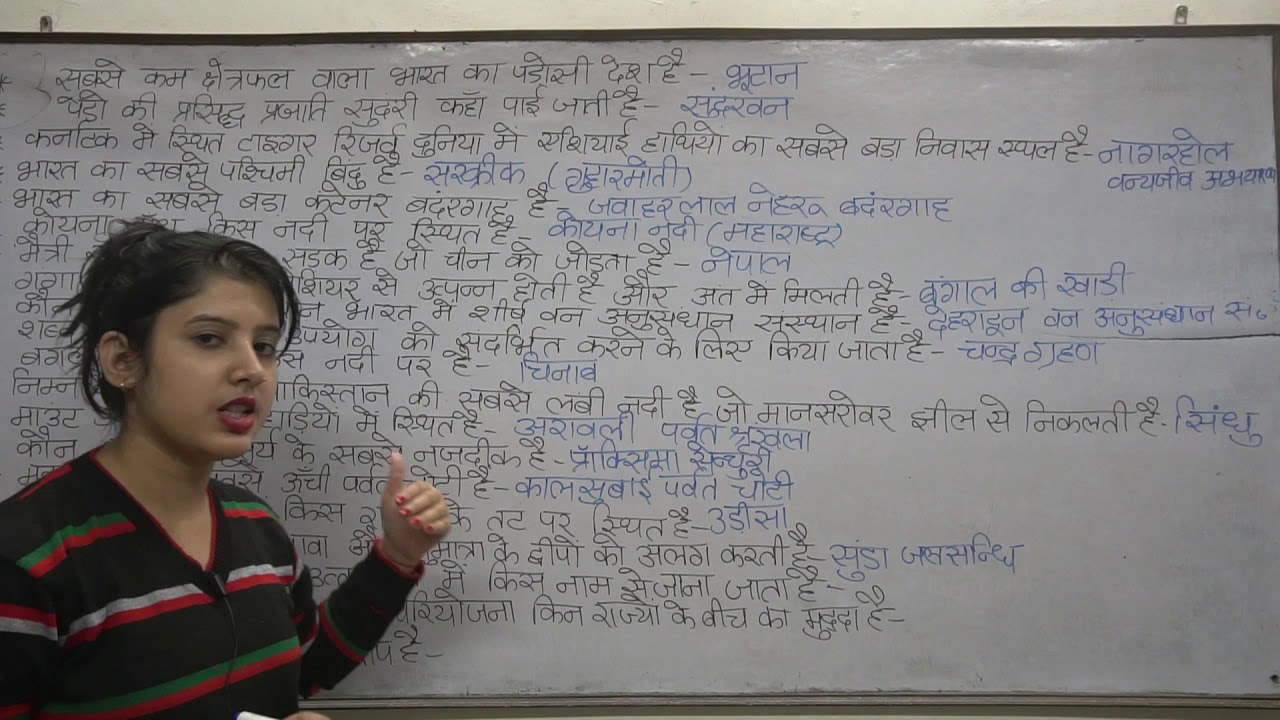 सबसे कम क्षेत्रफल वाला भारत का पड़ोसी देश है- भूटान
पेडो की प्रसिद्ध प्रजाति सुदंरी कहाँ पाई जाती है- सुंदरवन
कर्नाटक मे स्थित टाइगर रिजर्व दुनिया मे एशियाई हाथियों का सबसे बडा निवास स्थल है- नागरहोल
वन्यजीव अभयारण्य
भारत का सबसे पश्चिमी बिंदु है- सरक्रीक (गुहारमोती)
भारत का सबसे बडा कंटेनर बंदरगाह है- जवाहर लाल नेहरू बदंरगाह
कोयना किस नदी पर स्थित है- कोयना नदी (महाराष्ट्र)
मैत्री सड़क है जो चीन को जोड़ता है- नेपाल
गंगा से उत्पन्न होती है और अंत मे मिलती है- बंगाल की खाड़ी
कौन भारत मे शीर्ष वन अनुसंधान संस्थान है- देहरादून वन अनुसंधान सं॰
शब्द उपयोग को संदर्भित करने के लिए किया जाता है- चन्द्र ग्रहण
नदी पर है- चिनाब
निम्न पाकिस्तान की सबसे लंबी नदी है जो मानसरोवर झील से निकलती है- सिंधु
माउंट में स्थित है- अरावली पर्वत श्रृंखला
कौन के सबसे नजदीक है- प्रॉक्सिमा सेन्चुरी
ऊँची पर्वत चोटी है- कालसुबाई पर्वत चोटी
किस के तट पर स्थित है- उड़ीसा
के द्वीपो को अलग करती है- सुंडा जलसन्धि
में किस नाम से जाना जाता है-
परियोजना किन राज्यो के बीच का मुद्दा है-
है-